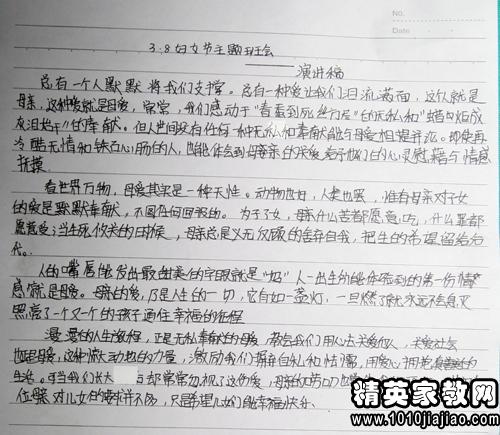 No.
Date
3.8妇女节主题班会
演讲稿
总有一个人默默将我们支撑。总有一种爱让我们泪流满面，这个人就是
母亲，这种爱就是母爱，常常，我们感动于“春蚕到死丝方尽”的无私和“蜡炬如成
灰泪始干”的奉献。但人世间没有任何一种无私和奉献能与母爱相提并论。即使再
冷酷无情和铁石心肠的人，也能体会到母亲的关爱给予他们的心灵慰藉与情感
抚摸。
看世界万物，母爱其实是一种天性。动物也好，人类也罢，唯有母亲对子女
的爱是默默奉献，不图任何回报的。为了子女，母亲什么苦都愿意吃，什么罪都
愿意受；当生死攸关的时候，母亲总是义无反顾的舍弃自我，把生的希望留给后
代。
人的嘴唇能发出最甜美的字眼就是“妈”人一出生所能体验到的第一份情
感就是母爱。母亲的爱，乃是人生的一切，它自如一盏灯，一旦燃了就永远不会息灭
照亮了一个又一个的孩子通往幸福的征程
漫漫的人生旅程，正是无私奉献的母爱，带给我们用心去关爱他人，关爱社会
也是母爱，这种撼天动地的力量，激励我们摒弃自私和怯懦，用爱心拥抱
生活。可当我们长大 却常常忽视了这份爱，母亲的
位 对儿女的要求并不多，只是希望儿女们能幸福快乐。
精英家教网
www.1010jiajiao.com